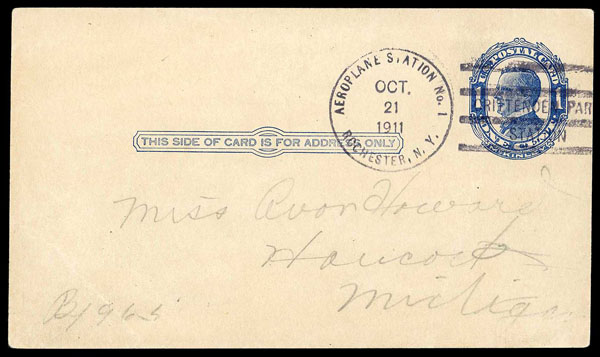 AEROPLANE STATION No. 1
OCT.
21
1911
ROCHESTER, N. Y.
U.S. POSTAL CARD
1 1
CRITTENDEN PAR
STATION
ONE CENT
McKINLEY
THIS SIDE OF CARD IS FOR ADDRESS ONLY
Miss Avon Howard
Hancock
Michigan